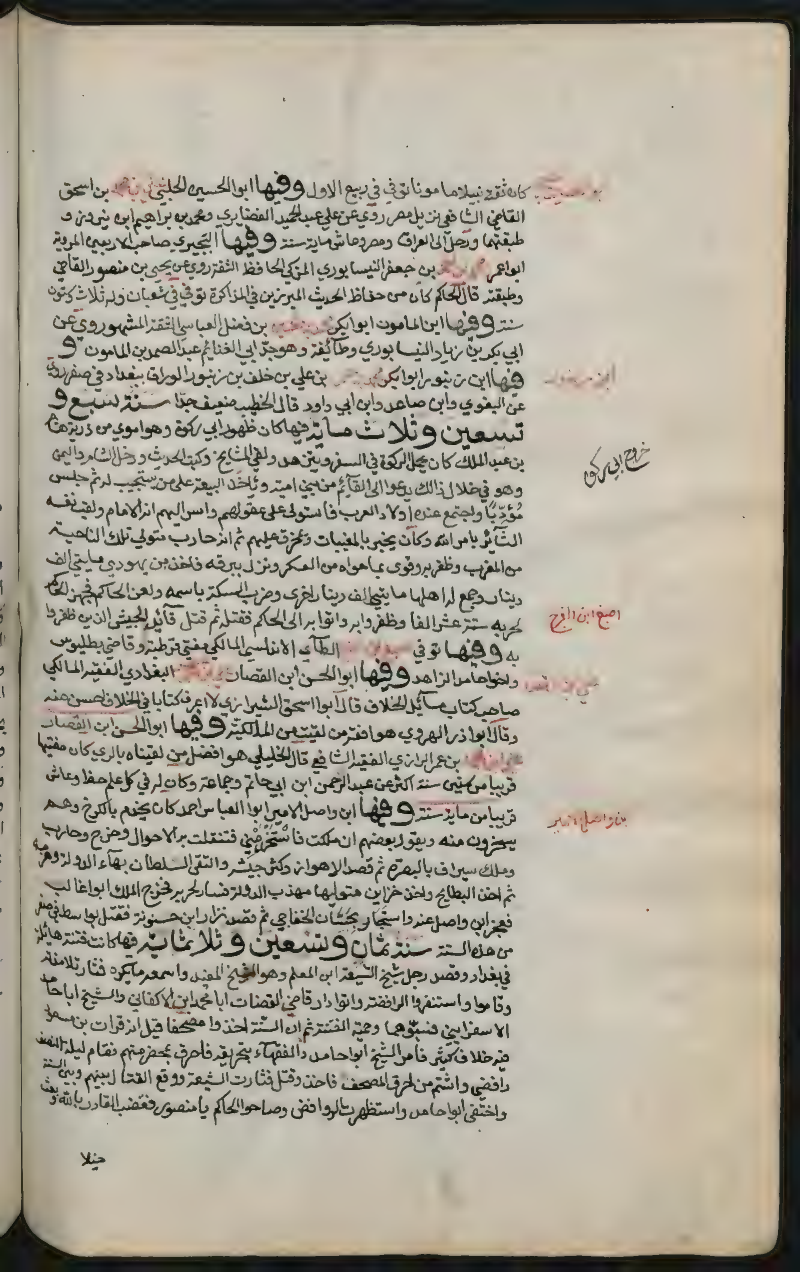 كان ثقة نبيلا مامونا توفي في ربيع الاول وفيها ابوا الحسين الحلبي علي بن محمد بن اسحق
القاضي الشافعي نزيل مصر روي عن علي بن عبد الحميد الغضايري ومحمد بن براهيم ابن نيروز و
طبقتهما ورحل الى العراق ومصر وعاش ماية سنة وفيها البحيري صاحب الاربعين المروية
ابواعمر محمد بن محمد بن جعفر النيسابوري المزكي الحافظ الثقة روي عن يحيى بن منصور القاضي
وطبقته قال الحاكم كان من حفاظ الحديث المبرزين في المذاكرة توفي في شعبان وله ثلاث وستون
سنة وفيها ابن المامون ابوا بكر بن فضل العباسي الثقة المشهور روي عن
ابي بكر بن زياد النيسابوري وطائفة وهو جد ابي الغنايم عبد الصمد بن المامون و
فيها ابن زنبور ابوا بكر محمد بن عمر بن علي بن خلف بن زنبور الوراق ببغداد في صفر روي
عن البغوي وابن صاعد وابن ابي داود قال الخطيب ضعيف جدا سنة سبع و
تسعين وثلاث ماية فيها كان ظهور ابي ركوة وهو اموي من ذرية هشام
بن عبد الملك كان يحمل الركوة في السفر ويتزهد ولقي المشايخ وكتب الحديث ودخل الشام واليمن
وهو في خلال ذالك يدعوا الى القائم من بني امية وياخذ البيعة على من يستجيب له ثم جلس
مؤدبا واجتمع عنده اولاد العرب فاستولى على عقولهم واسر اليهم انه الامام ولقب نفسه
الثائر بامر الله وكان يخبر بالمغيبات ويمخرق عليهم ثم انه حارب متولي تلك الناحية
من المغرب وظفر به وقوى بما حواه من العسكر ونزل ببرقة فاخذ من يهودي مايتي الف
دينار وجمع له اهلها مايتي الف دينار اخرى وضرب السكة باسمه ولعن الحاكم فجهز الحاكم
لحربه ستة عشر الفا وظفروا به واتوا به الى الحاكم فقتله ثم قتل قائد الجيش الذين ظفروا
به وفيها توفي اصبغ بن الفرج الطائي الاندلسي المالكي مفتي قرطبة وقاضي بطليوس
واخوا حامد الزاهد وفيها ابوا الحسن ابن القصار علي بن البغدادي الفقيه المالكي
صاحب كتاب مسائل الخلاف قال ابوا اسحق الشيرازي لا اعرف كتابا في الخلاف احسن منه
وقال ابوا ذر الهروي هو افقه من لقيت من المالكية وفيها ابوا الحسن ابن القصار
علي بن محمد بن عمر الرازي الفقيه الشافعي قال الخليلي هو افضل من لقيناه بالري كان مفتيها
قريبا من ستين سنة اكثر عن عبد الرحمن ابن ابي حاتم وجماعة وكان له في كل علم حظ وعاش
قريبا من ماية سنة وفيها ابن واصل الامير ابوا العباس احمد كان يخدم بالكرخ وهم
يسخرون منه ويقول بعضهم ان ملكت فاستخدمني فتنقلت به الاحوال وخرج وحارب
وملك سيراف بالبصرة ثم قصد الاهواز وكثر جيشه والتقى السلطان بهاء الدولة وهزمه
ثم اخذ البطايح واخذ خزاين متوليها مهذب الدولة فسار لحربه فخرج الملك ابوا غالب
فعجز ابن واصل عنه واستجار بحسان الخفاجي ثم قصد نزار ابن حسنوية فقتل بواسط في صفر
من هذه السنة سنة ثمان وتسعين وثلاثماية فيها كانت فتنة هائلة
في بغداد وقصد رجل شيخ الشيعة ابن المعلم وهو الشيخ المفيد واسمعه ما يكره فثار تلامذته
وقاموا واستنفروا الرافضة واتوا دار قاضي القضات ابا محمد ابن الاكفاني والشيخ ابا حامد
الاسفرايني فسبوهما وحمية الفتنة ثم ان السنة اخذوا مصحفا قيل انه قراة بن مسعود
فيه خلاف كثير فامر الشيخ ابوا حامد والفقهاء بتحريقه فاحرق بمحضر منهم فقام ليلة النصف
رافضي واشتم من احرق المصحف فاخذ وقتل فثارت الشيعة ووقع القتال بينهم وبين السنة
واختفى ابوا حامد واستظهرت الروافض وصاحوا الحاكم يا منصور فغضب القادر بالله وبعث
خيلا
خروج ابي ركوة
اصبغ ابن الفرج
علي ابن القصار
ابن واصل الامير